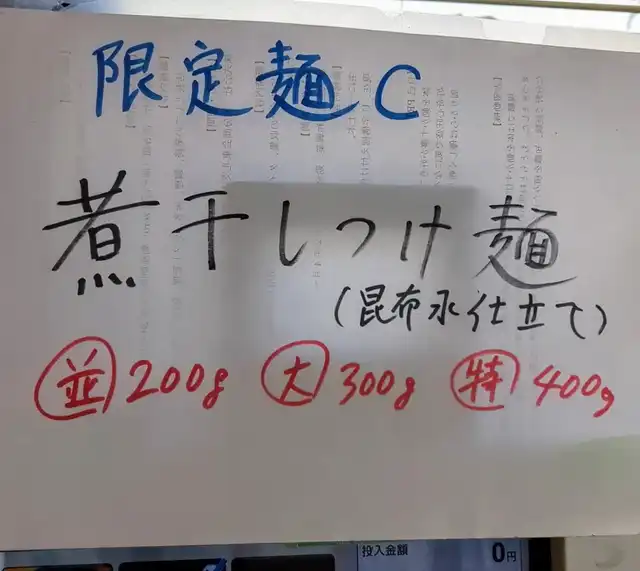 限定麺C
煮干しつけ麺
(昆布水仕立て)
並 200g 大 300g 特 400g
投入金額 0円